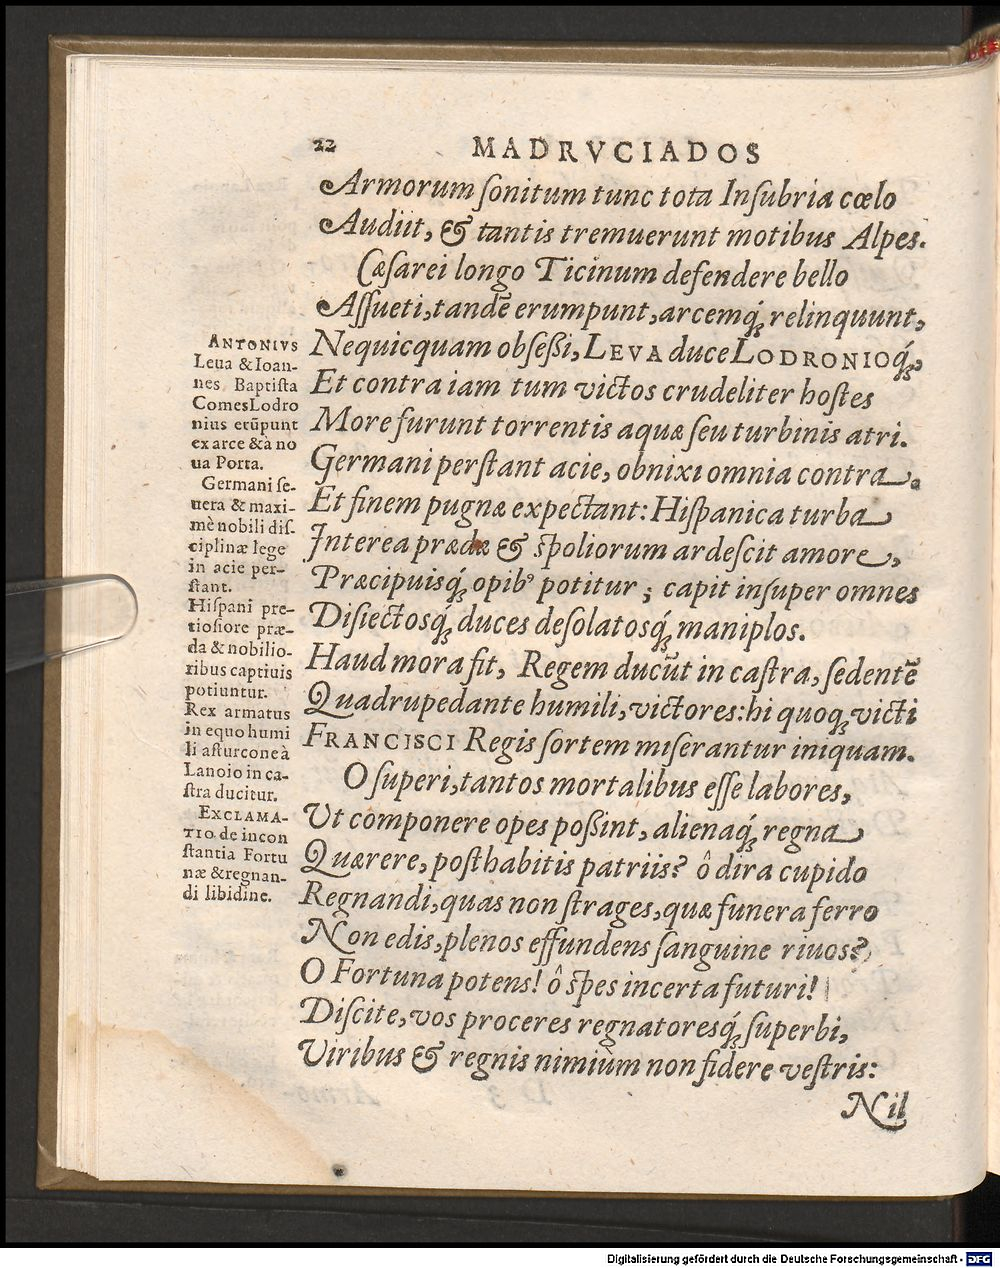 22 MADRVCIADOS
Armorum ſonitum tunc tota Inſubria cœlo
Audiit, & tantis tremuerunt motibus Alpes.
Cæſarei longo Ticinum defendere bello
Aſſueti, tandē erumpunt, arcemq́; relinquunt,
Nequicquam obſeßi, LEVA duce LODRONIOq́;
Et contra iam tum victos crudeliter hoſtes
More furunt torrentis aquæ ſeu turbinis atri.
Germani perſtant acie, obnixi omnia contra.
Et finem pugnæ expectant: Hiſpanica turba
Interea prædæ & ſpoliorum ardeſcit amore,
Præcipuisq́; opibꝰ potitur; capit inſuper omnes
Diſiectosq́; duces deſolatosq́; maniplos.
Haud mora fit, Regem ducūt in caſtra, ſedentē
Quadrupedante humili, victores: hi quoq; victi
FRANCISCI Regis ſortem miſerantur iniquam.
O ſuperi, tantos mortalibus eſſe labores,
Ut componere opes poßint, alienaq́; regna
Quærere, poſthabitis patriis? ô dira cupido
Regnandi, quas non ſtrages, quæ funera ferro
Non edis, plenos effundens ſanguine riuos?
O Fortuna potens! ô ſpes incerta futuri!
Diſcite, vos proceres regnatoresq́; ſuperbi,
Viribus & regnis nimiùm non fidere veſtris:
Nil
ANTONIVS
Leua & Ioan-
nes Baptiſta
Comes Lodro
nius erūpunt
ex arce & à no
ua Porta.
Germani ſe-
uera & maxi-
mè nobili diſ-
ciplinæ lege
in acie per-
ſtant.
Hiſpani pre-
tioſiore præ-
da & nobilio-
ribus captiuis
potiuntur.
Rex armatus
in equo humi
li aſturcone à
Lanoio in ca-
ſtra ducitur.
EXCLAMA-
TIO de incon
ſtantia Fortu
næ & regnan-
di libidine.
Digitalisierung gefördert durch die Deutsche Forschungsgemeinschaft - DFG